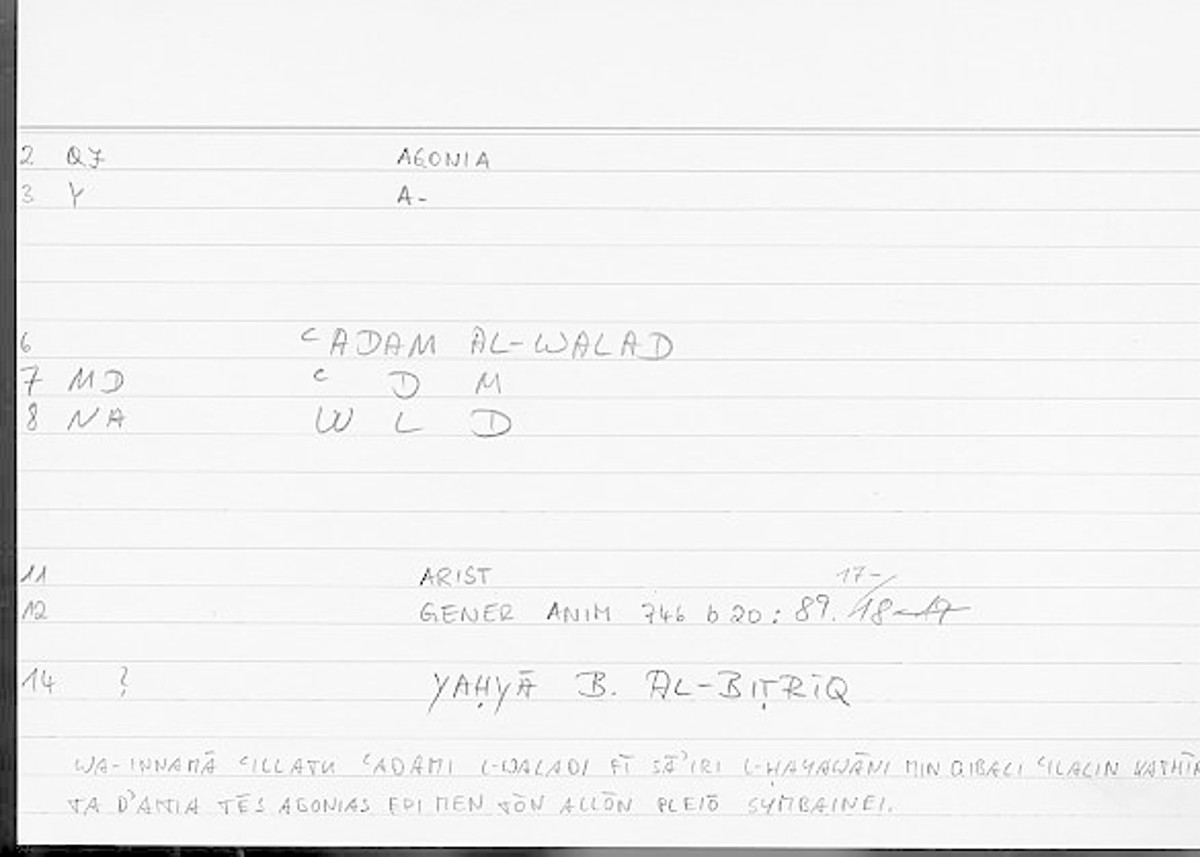 2 QJ AGONIA
3 Y A-
6 ʿADAM AL-WALAD
7 MD ʿ D M
8 NA W L D
11 ARIST 17-
12 GENER ANIM 746 b 20 : 89.
14 ? YAḤYĀ B. AL-BIṬRĪQ
WA-INNAMĀ ʿILLATU ʿADAMI L-WALADI FĪ SĀʾIRI L-ḤAYAWĀNI MIN QIBALI ʿILALIN KATHĪR
TA D'AITIA TĒS AGONIAS EPI MEN TŌN ALLŌN PLEIŌ SYMBAINEI.